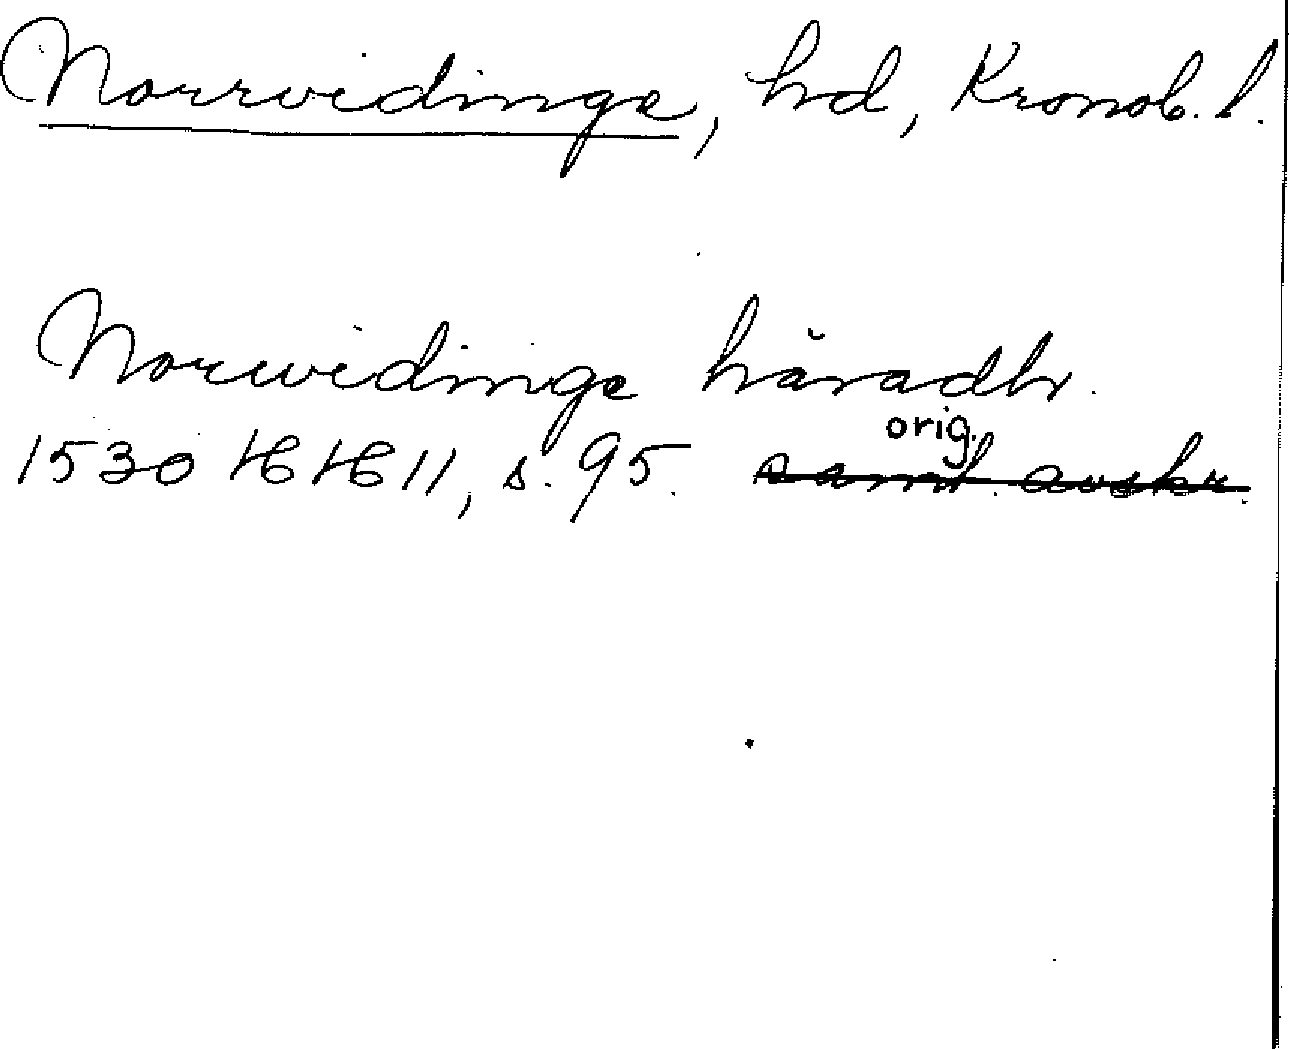 Norrvidinge, hd, Kronob. l.
Norwidinge häradh.
orig.
1530 HH 11, s. 95. saml. avskr.